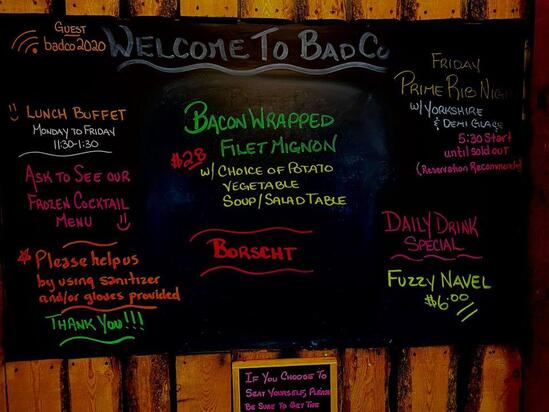 Guest
badco2020
Welcome To BadCo
Lunch Buffet
Monday to Friday
11:30-1:30
Ask to See our
Frozen Cocktail
Menu
Please help us
by using sanitizer
and/or gloves provided
Thank You!!!
Bacon Wrapped
Filet Mignon
$28
w/ Choice of Potato
Vegetable
Soup/Salad Table
Borscht
Friday
Prime Rib Night
w/ Yorkshire
& Demi Glace
5:30 Start
until sold out
(Reservation Recommended)
Daily Drink
Special
Fuzzy Navel
$6.00
If You Choose To
Seat Yourself, Please
Be Sure To Get The